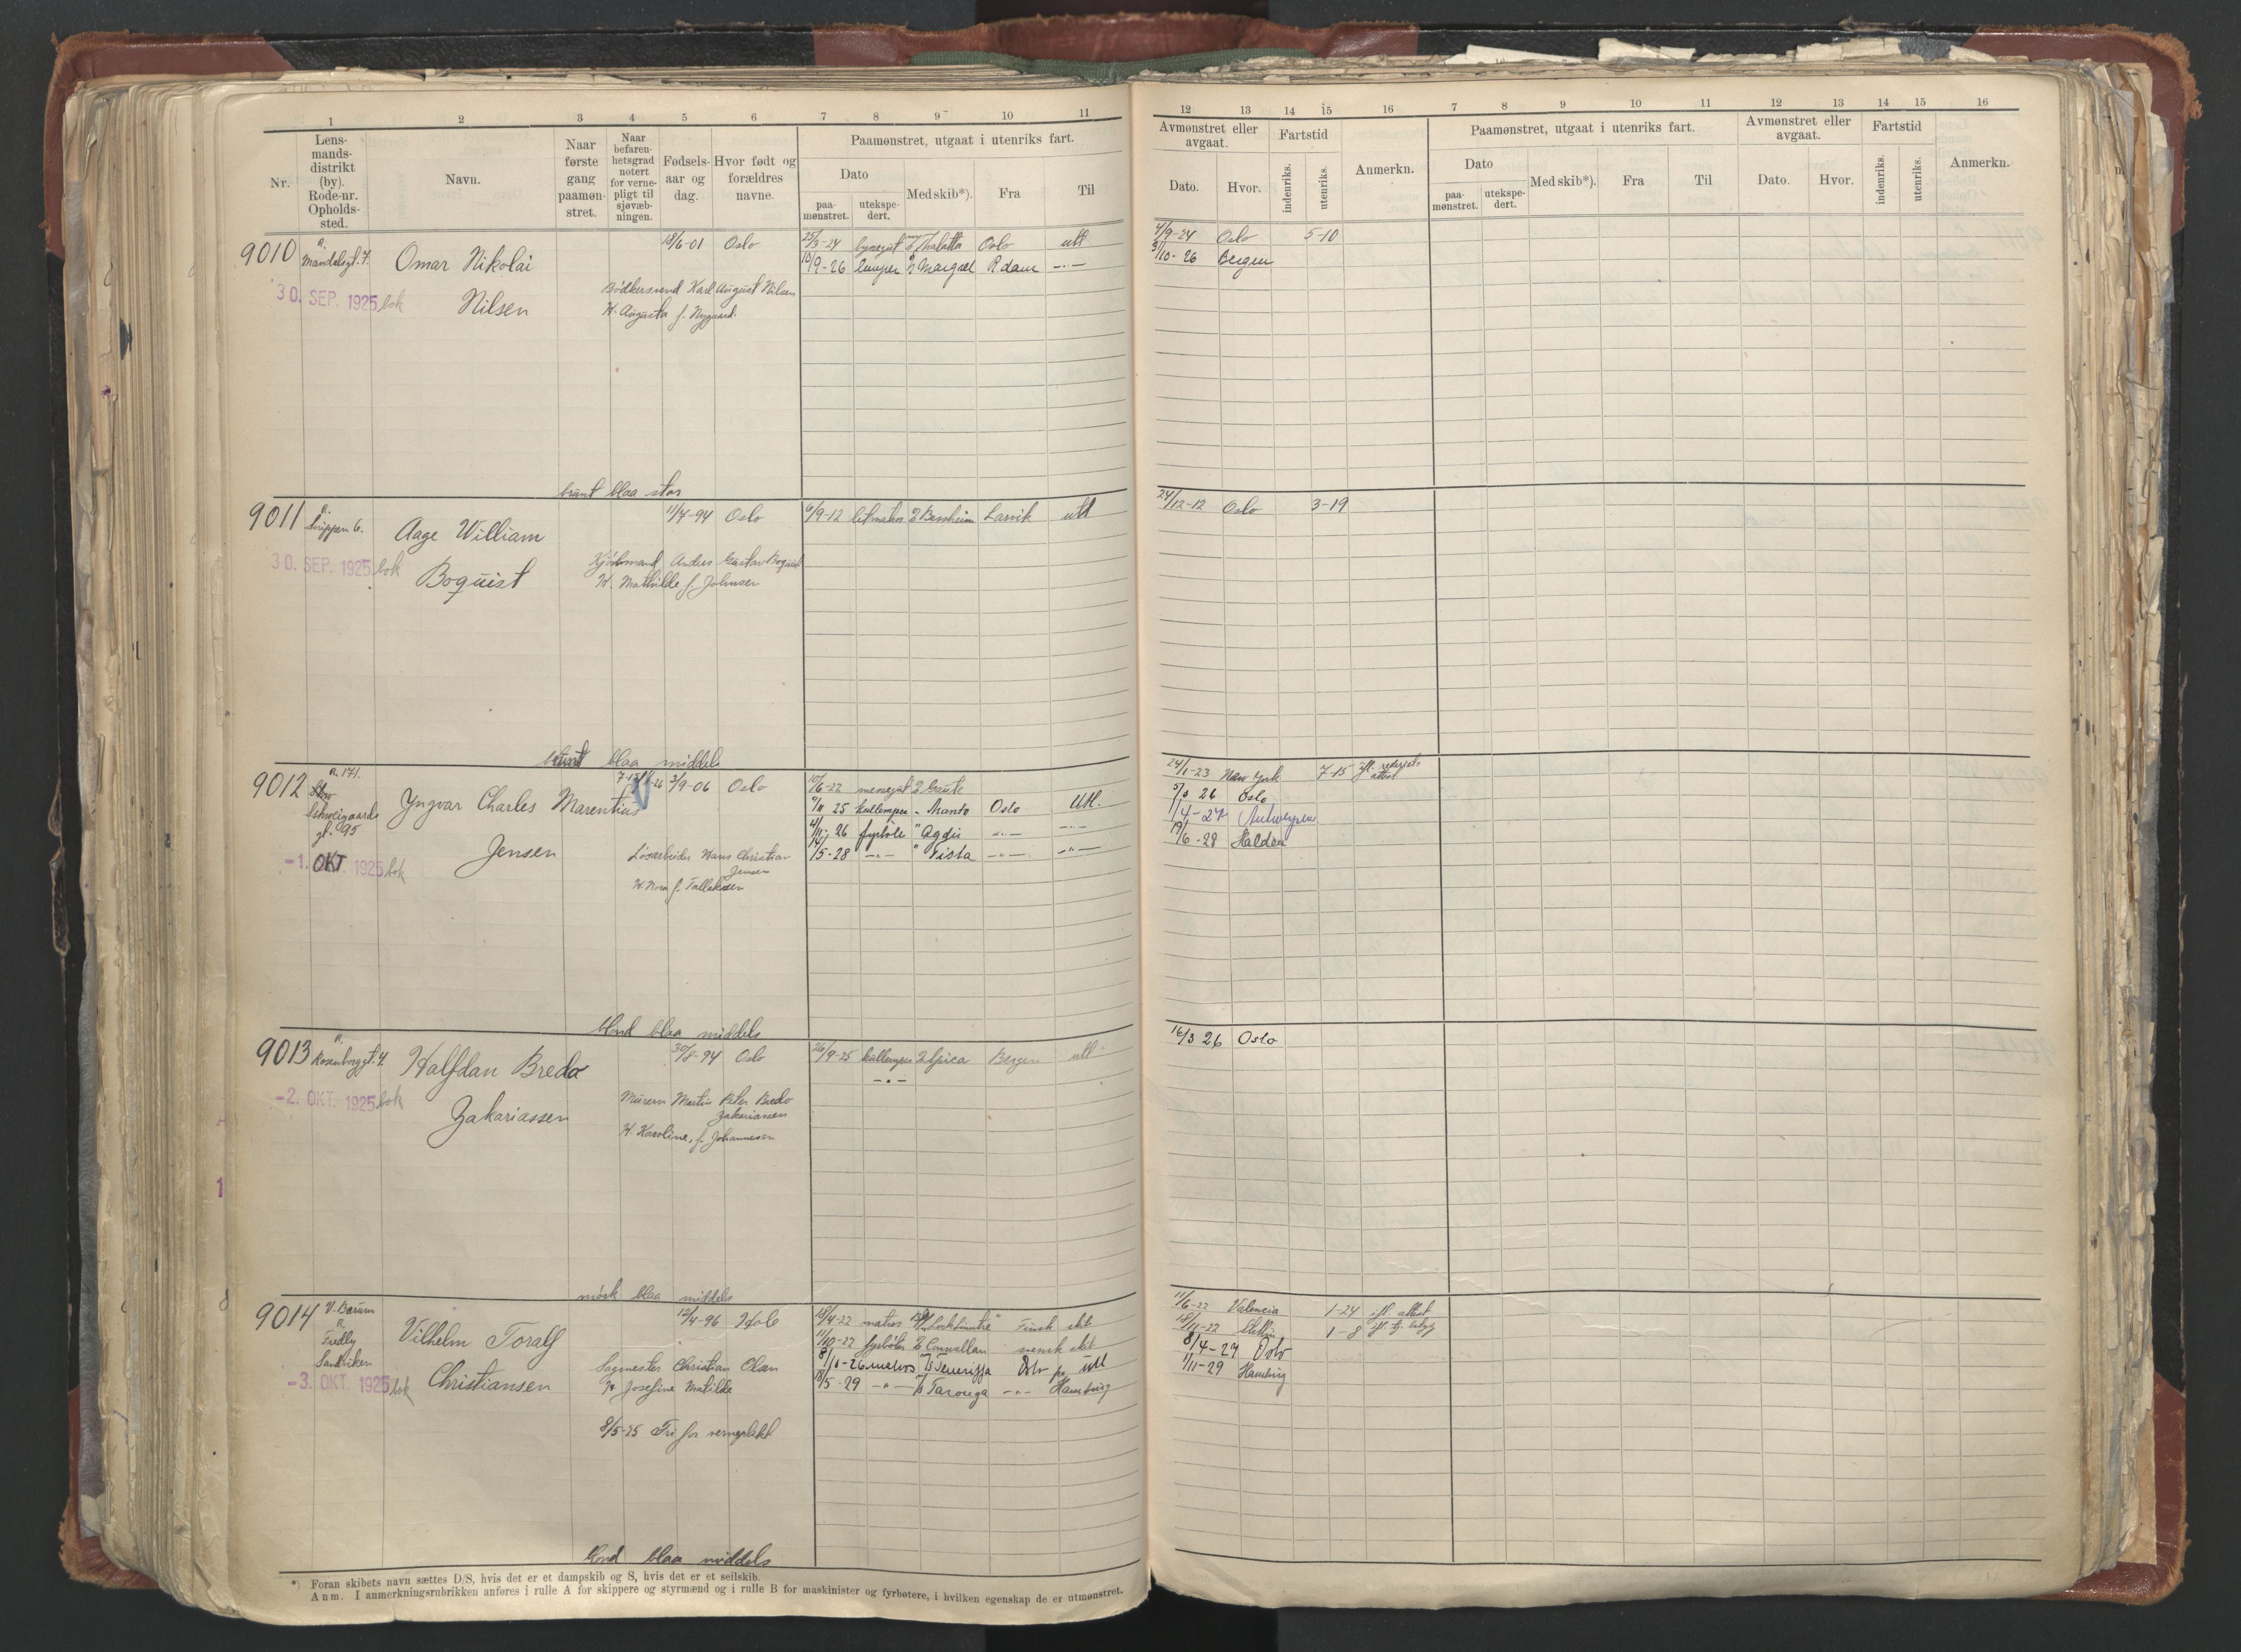 1 2 3 4 5 6 7 8 9 10 11
Nr. Lens-mands-distrikt (by). Rode-nr. Opholds-sted. Navn. Naar første gang paamøn-stret. Naar befaren-hetsgrad notert for verne-pligt til sjøvæb-ningen. Fødsels-aar og dag. Hvor født og forældres navne. Paamønstret, utgaat i utenriks fart.
Dato paa-mønstret. utekspe-dert. Med skib*). Fra Til
12 13 14 15 16 7 8 9 10 11 12 13 14 15 16
Avmønstret eller avgaat. Fartstid Anmerkn. Paamønstret, utgaat i utenriks fart. Avmønstret eller avgaat. Fartstid Anmerkn.
Dato. Hvor. indenriks. utenriks. Dato paa-mønstret. utekspe-dert. Med skib*). Fra Til Dato. Hvor. indenriks. utenriks.
9010 Mandalsgt. 7. Omar Nikolai 18/6-01 Oslo 25/3-24 Thalatta Oslo utl 4/9-24 Oslo 5-10
10/9-26 lemper Margret R dam -"- 5/10-26 Bergen
30. SEP. 1925 bok Nilsen Bödkersvend Karl August Nilsen
H. Augusta f. Nygaard.
brunt blaa stor
9011 Snippen 6. Aage William 11/7-94 Oslo 6/9-12 letmatros Larvik utl 24/12-12 Oslo 3-19
30. SEP. 1925 bok Boquist Anders Gustav Boquist
H. Mathilde f. Johnsen
brunt blaa middels
9012 R. 171. Schweigaards gt. 95 Yngvar Charles Marentius 3/9-06 Oslo 10/6-22 messegut 24/1-23 New York 7-15 ifl. rederiets attest
25 kullemper Oslo Utl. 26 Oslo
26 fyrböter " Agdi -"- -"- 1/4-27 Antwerpen
14/5-28 -"- " Vista -"- -"- 19/6-28 Halden
-1. OKT. 1925 bok Jensen Lösarbeider Hans Christian Jensen
H. Nora f. Tallaksen
blond blaa middels
9013 R. Rosenborggt. 4. Halfdan Bredo 30/8-94 Oslo 26/9-25 kullemper Spica Bergen utl 16/3 26 Oslo
-2. OKT. 1925 bok Zakariassen Murerm Martin Peter Bredo Zakariassen
H. Karoline, f. Johannesen
mörk blaa middels
9014 V. Bærum R. Fredly Sandviken Vilhelm Toralf 12/4-96 Hole 18/4-22 matros Finsk skib 11/6-22 Valencia 1-24 ifl. attest
11/10-22 fyrböter svensk skib 18/11-22 Stettin 1-8
26 matros Teneriffa Oslo utl 8/4-27 Oslo
18/5-29 -"- Taronga -"- Hamburg 1/11-29 Hamburg
-3. OKT. 1925 bok Christiansen Sagmester Christian Olsen
H. Josefine Matilde
8/5-25 Fri for verneplikt
blond blaa middels
*) Foran skibets navn sættes D/S, hvis det er et dampskib og S, hvis det er et seilskib.
Anm. I anmerkningsrubrikken anføres i rulle A for skippere og styrmænd og i rulle B for maskinister og fyrbøtere, i hvilken egenskap de er utmønstret.